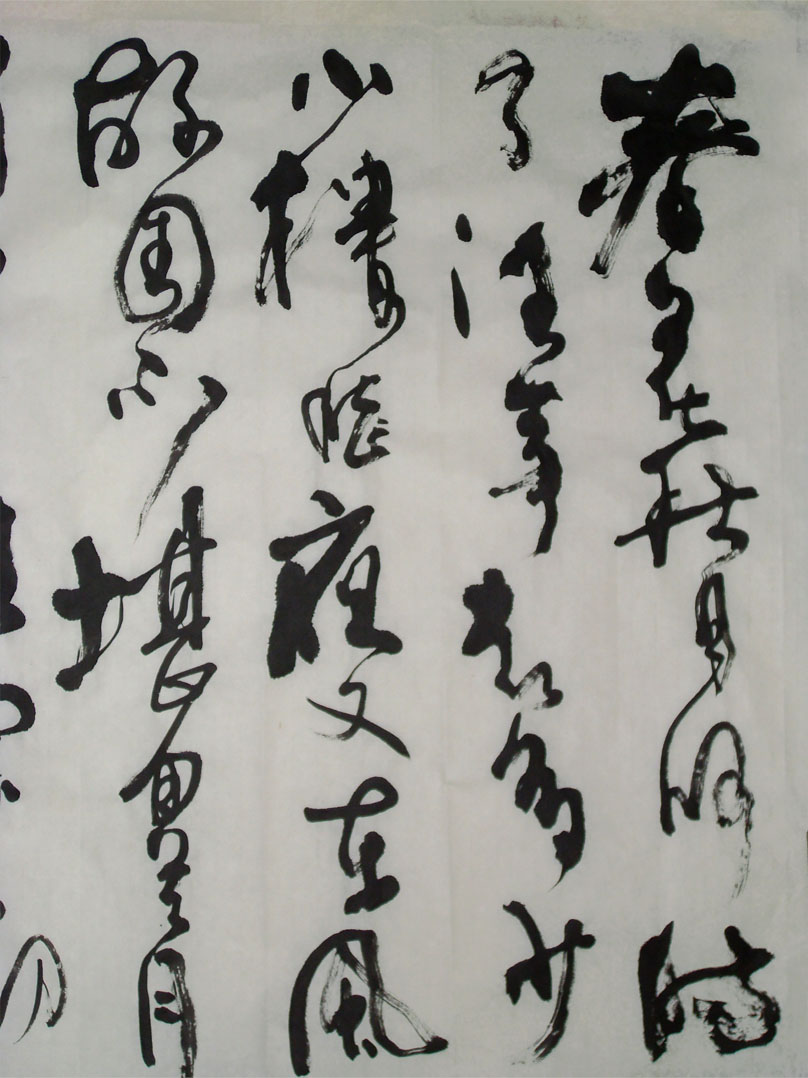 春花秋月何時
了往事知多少
小樓昨夜又東風
故國不堪回首月